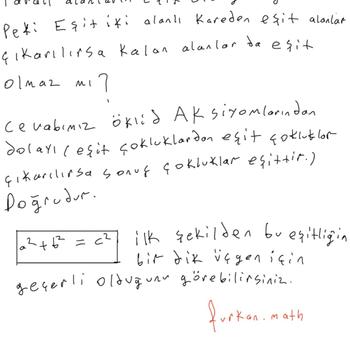 alanların
Peki Eşit iki alanlı Kareden eşit alanlar
çıkarılırsa Kalan alanlar da eşit
olmaz mı?
Cevabımız öklid Aksiyomlarından
dolayı (eşit çokluklardan eşit çokluklar
çıkarılırsa sonuç çokluklar eşittir.)
Doğrudur.
a² + b² = c² ilk şekilden bu eşitliğin
bir dik üçgen için
geçerli olduğunu görebilirsiniz.
furkan.math